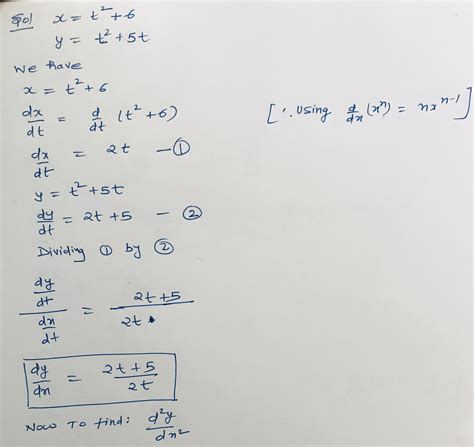 Sol x = t² + 6
y = t² + 5t
We have
x = t² + 6
dx/dt = d/dt (t² + 6) [∵ Using d/dx (xⁿ) = nxⁿ⁻¹]
dx/dt = 2t — ①
y = t² + 5t
dy/dt = 2t + 5 — ②
Dividing ① by ②
(dy/dt)/(dx/dt) = (2t + 5)/(2t)
dy/dx = (2t + 5)/(2t)
Now To find: d²y/dx²